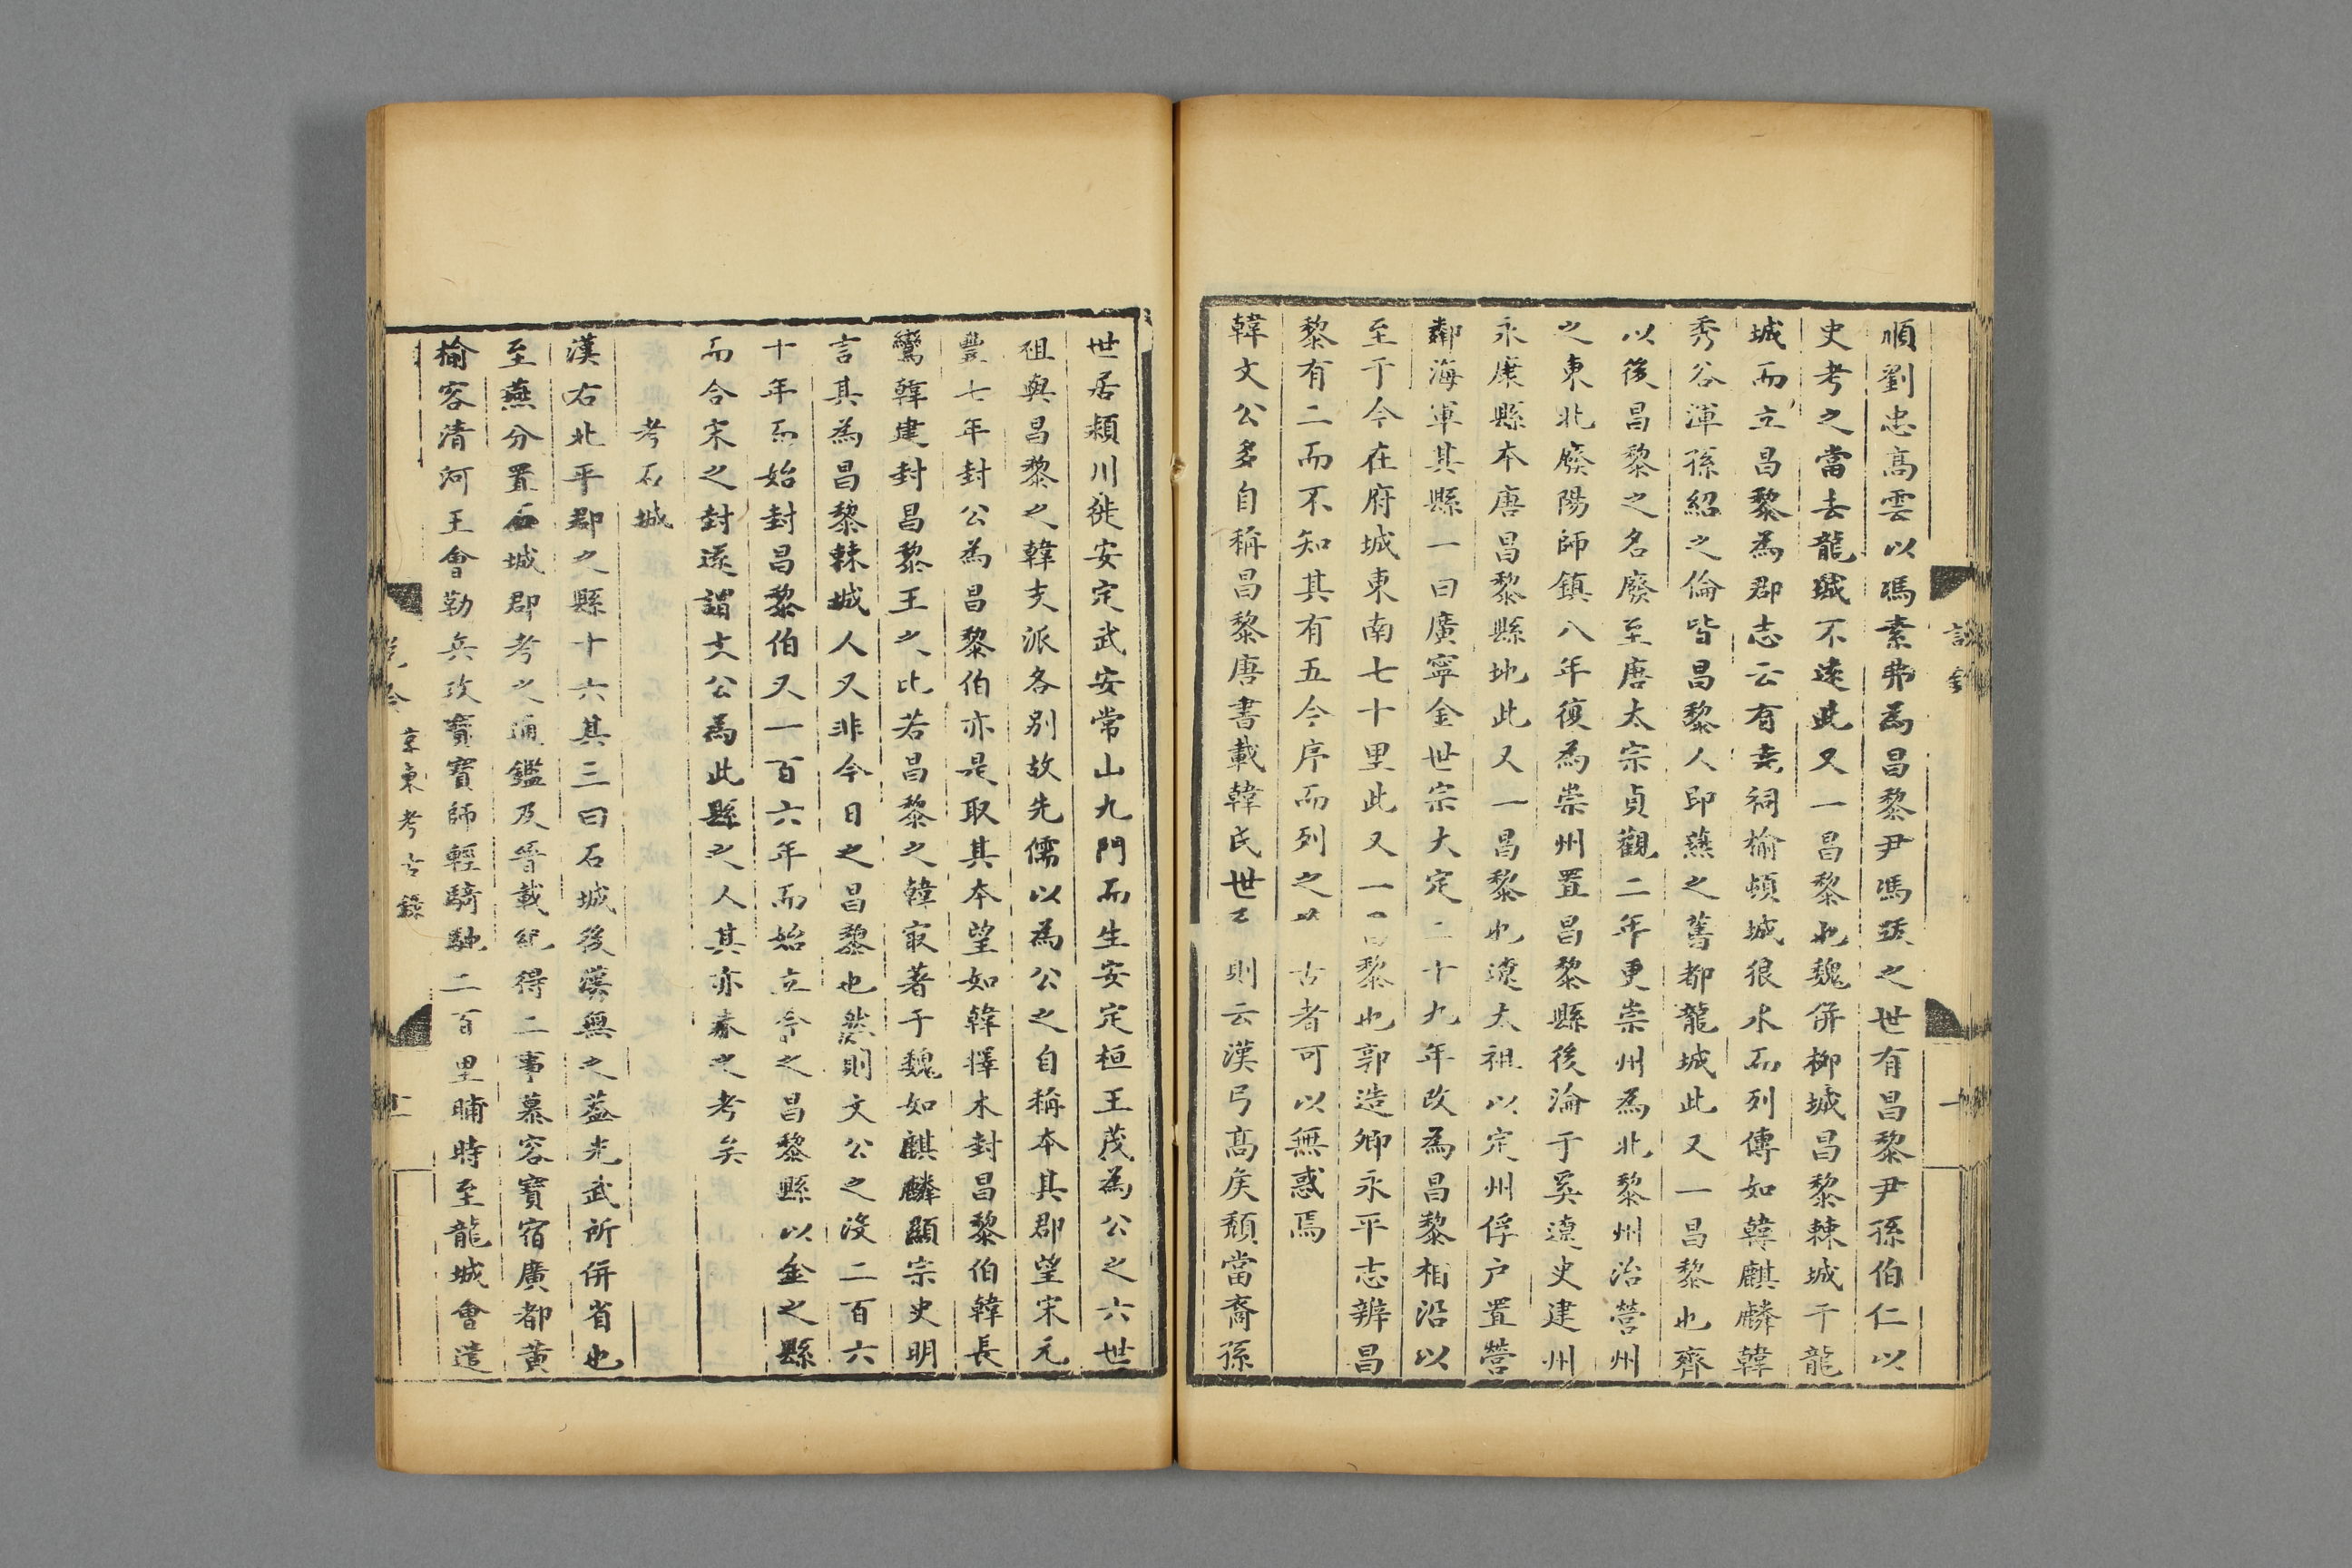 順劉忠高雲以馮素弗為昌黎尹馮䟦之世有昌黎尹孫伯仁以
史考之當去龍城不遠此又一昌黎也魏併柳城昌黎棘城于龍
城而立昌黎為郡志云有尭祠榆頓城狼水而列傳如韓麒麟韓
秀谷渾孫紹之倫皆昌黎人即燕之舊都龍城此又一昌黎也齊
以後昌黎之名廢至唐太宗貞觀二年更崇州為北黎州治營州
之東北廢陽師鎮八年復為崇州置昌黎縣後淪于奚遼史建州
永康縣本唐昌黎縣地此又一昌黎也遼太祖以定州俘户置營
鄰海軍其縣一曰廣寧金世宗大定二十九年改為昌黎相沿以
至于今在府城東南七十里此又一昌黎也郭造卿永平志辨昌
黎有二而不知其有五今序而列之 古者可以無惑焉
韓文公多自稱昌黎唐書載韓氏世 則云漢弓高矦頹當裔孫
世居潁川徙安定武安常山九門而生安定桓王茂為公之六世
祖與昌黎之韓支派各別故先儒以為公之自稱本其郡望宋元
豐七年封公為昌黎伯亦是取其本望如韓擇木封昌黎伯韓長
鸞韓建封昌黎王之比若昌黎之韓㝡著于魏如麒麟顯宗史明
言其為昌黎棘城人又非今日之昌黎也然則文公之沒二百六
十年而始封昌黎伯又一百六年而始立今之昌黎縣以金之縣
而合宋之封遂謂文公為此縣之人其亦未之考矣
考石城
漢右北平郡之縣十六其三曰石城後漢無之葢光武所併省也
至燕分置石城郡考之通鑑及晉載紀得二事慕容寶宿廣都黃
榆谷清河王會勒兵攻寶寶師輕騎馳二百里晡時至龍城會遣
京東考古錄